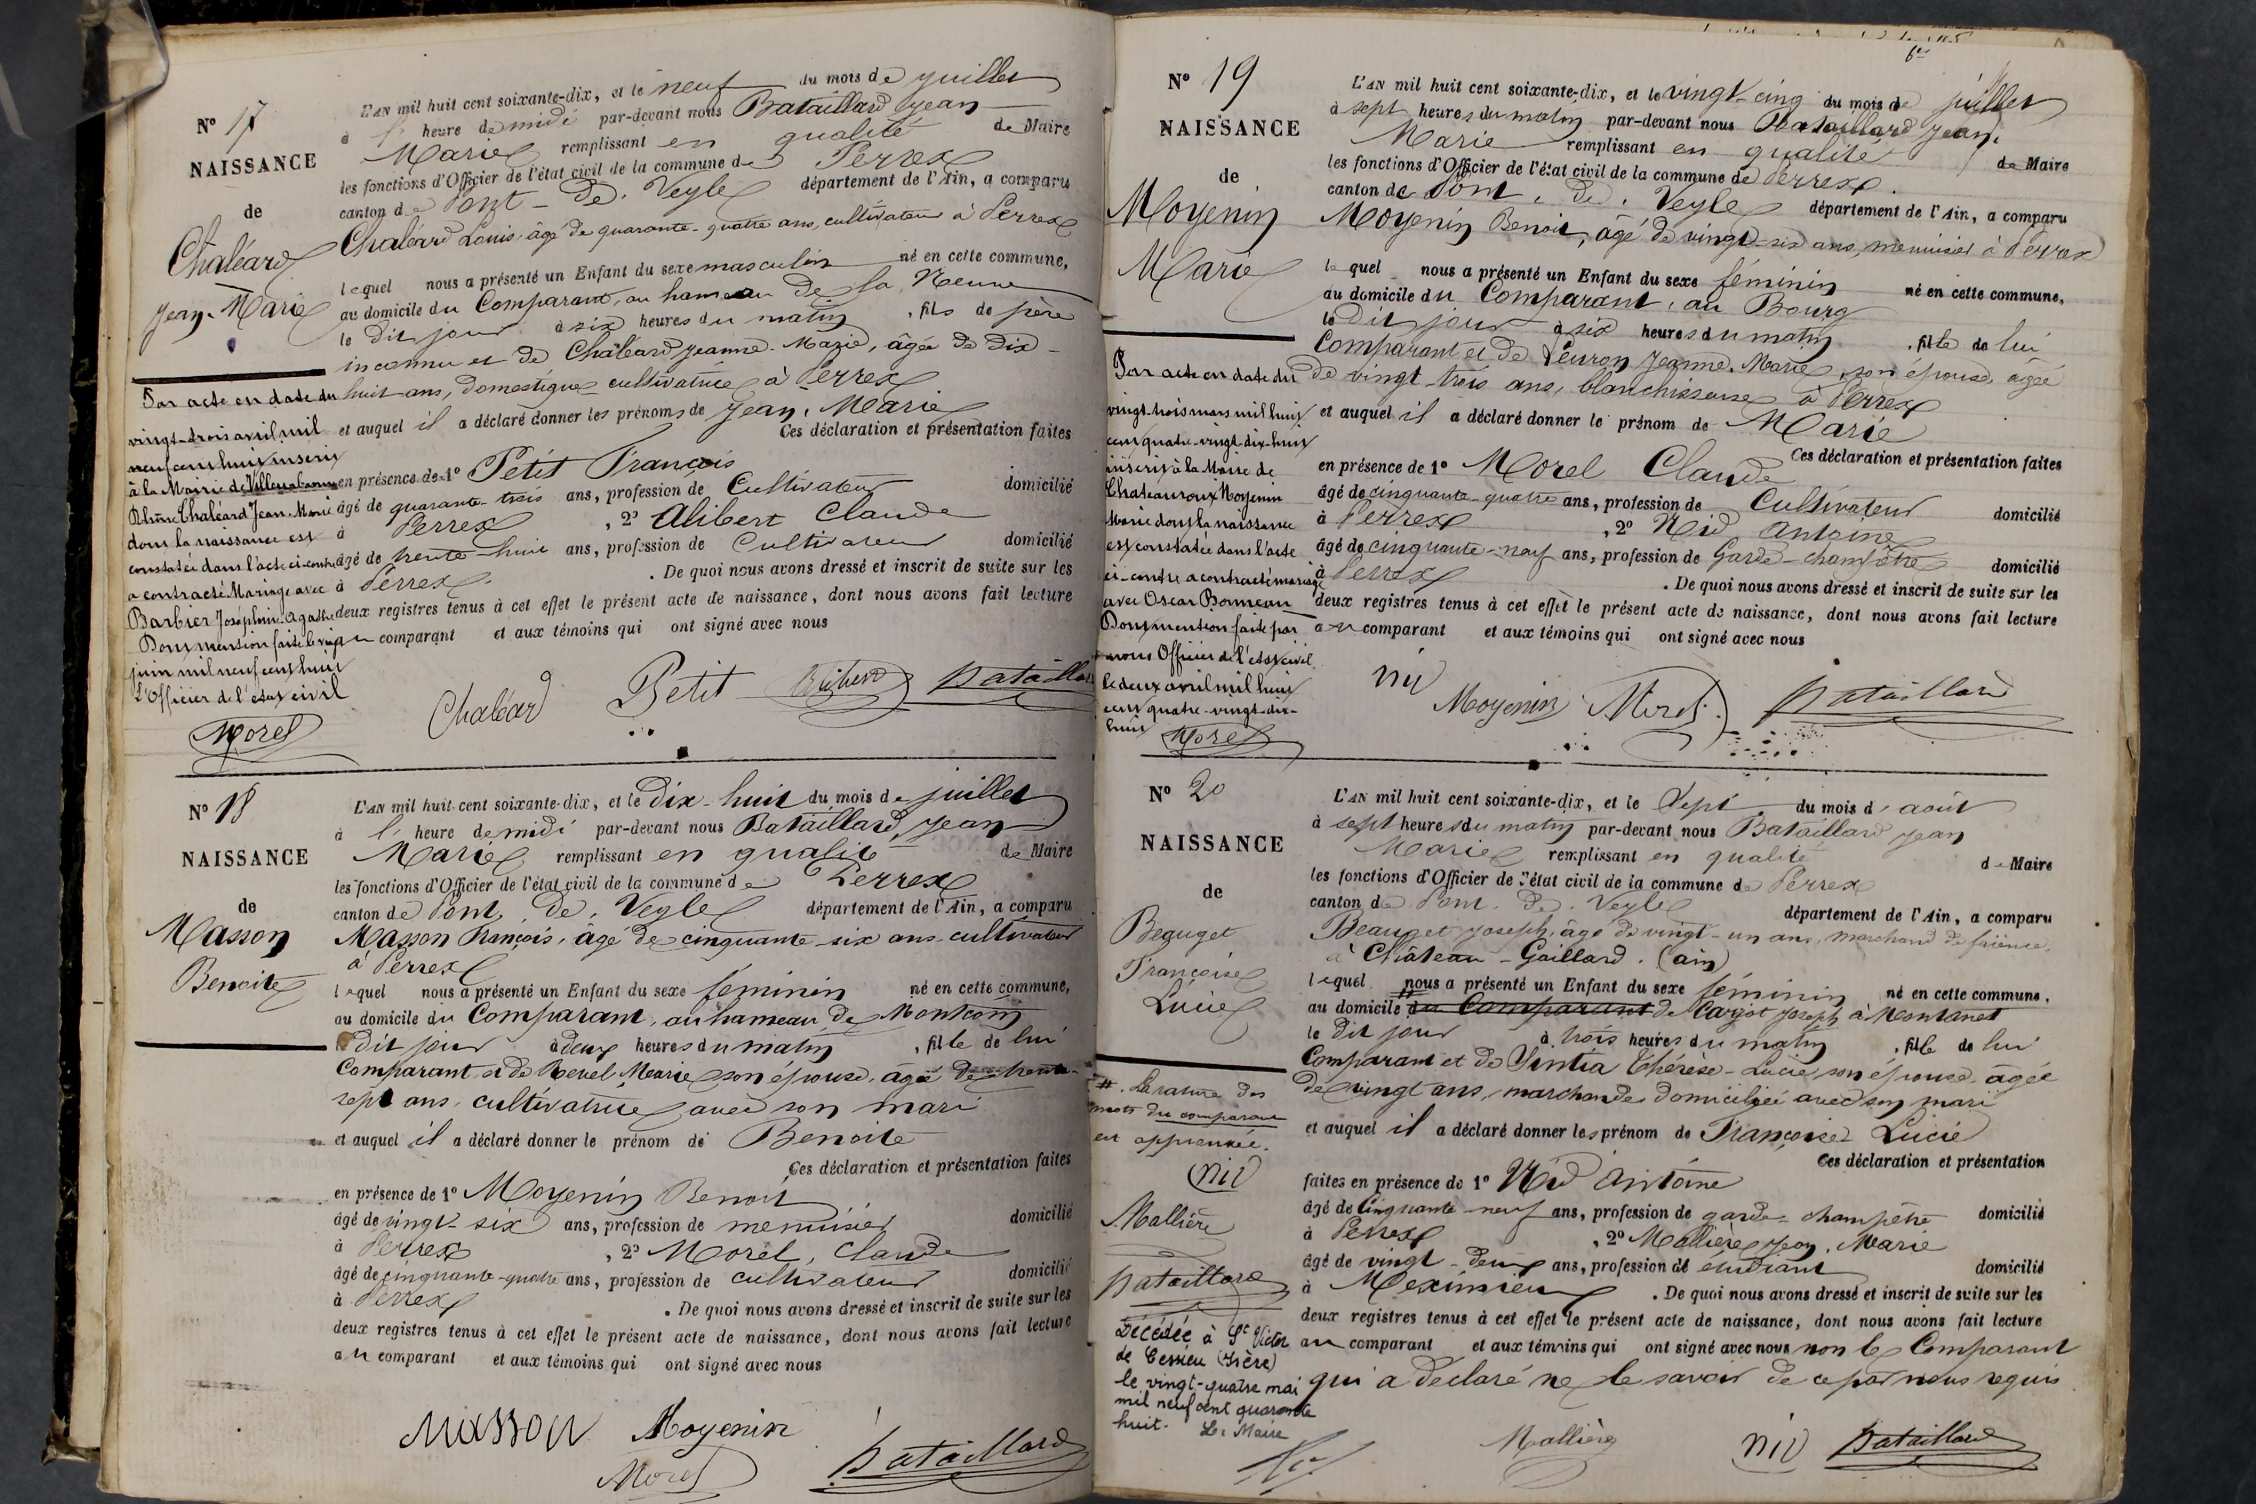 N° 17
NAISSANCE
de
Chaléard
Jean-Marie
L'AN mil huit cent soixante-dix, et le neuf du mois de juillet
à 1' heure de midi par-devant nous Bataillard Jean
Marie remplissant en qualité de Maire
les fonctions d'Officier de l'état civil de la commune de Perrex
canton de Pont-de-Veyle département de l'Ain, a comparu
Chaléard Louis, âgé de quarante-quatre ans, cultivateur à Perrex
lequel nous a présenté un Enfant du sexe masculin né en cette commune,
au domicile du Comparant, au hameau de la
le dit jour à six heures du matin, fils de père
inconnu et de Chaléard Jeanne-Marie, âgée de dix-
huit ans, domestique cultivatrice à Perrex
et auquel il a déclaré donner les prénoms de Jean, Marie
Ces déclaration et présentation faites
en présence de 1° Petit François
âgé de quarante-trois ans, profession de Cultivateur domicilié
à Perrex, 2° Alibert Claude
âgé de trente-huit ans, profession de Cultivateur domicilié
à Perrex. De quoi nous avons dressé et inscrit de suite sur les
deux registres tenus à cet effet le présent acte de naissance, dont nous avons fait lecture
au comparant et aux témoins qui ont signé avec nous
Chaléard Petit Alibert Bataillard
Par acte en date du
vingt-trois avril mil
neuf cent huit inscrit
à la Mairie de Villeurbanne
Rhône Chaléard Jean-Marie
dont la naissance est
constatée dans l'acte ci-contre
a contracté Mariage avec
Barbier Joséphine-Agathe
Dont mention faite le vingt
juin mil neuf cent huit
L'Officier de l'état civil
Morel
N° 18
NAISSANCE
de
Masson
Benoite
L'AN mil huit cent soixante-dix, et le dix-huit du mois de juillet
à l' heure de midi par-devant nous Bataillard, Jean
Marie remplissant en qualité de Maire
les fonctions d'Officier de l'état civil de la commune de Perrex
canton de Pont, de, Veyle département de l'Ain, a comparu
Masson François, âgé de cinquante-six ans cultivateur
à Perrex
lequel nous a présenté un Enfant du sexe féminin né en cette commune,
au domicile du Comparant, au hameau de Montcoin
le dit jour à deux heures du matin, fille de lui
Comparant et de Revel Marie son épouse, âgée de trente-
sept ans, cultivatrice avec son mari
et auquel il a déclaré donner le prénom de Benoite
Ces déclaration et présentation faites
en présence de 1° Moyenin Benoit
âgé de vingt-six ans, profession de menuisier domicilié
à Perrex, 2° Morel, Claude
âgé de cinquante-quatre ans, profession de cultivateur domicilié
à Perrex. De quoi nous avons dressé et inscrit de suite sur les
deux registres tenus à cet effet le présent acte de naissance, dont nous avons fait lecture
au comparant et aux témoins qui ont signé avec nous
Masson Moyenin
Morel Bataillard
N° 19
NAISSANCE
de
Moyenin
Marie
L'AN mil huit cent soixante-dix, et le vingt-cinq du mois de juillet
à sept heures du matin par-devant nous Bataillard Jean,
Marie remplissant en qualité de Maire
les fonctions d'Officier de l'état civil de la commune de Perrex.
canton de Pont, de, Veyle département de l'Ain, a comparu
Moyenin Benoit, âgé de vingt-six ans, menuisier à Perrex
lequel nous a présenté un Enfant du sexe féminin né en cette commune,
au domicile du Comparant, au Bourg
le dit jour à six heures du matin, fille de lui
Comparant et de Peuron Jeanne, Marie, son épouse, âgée
de vingt-trois ans, blanchisseuse à Perrex
et auquel il a déclaré donner le prénom de Marie
Ces déclaration et présentation faites
en présence de 1° Morel Claude
âgé de cinquante-quatre ans, profession de Cultivateur domicilié
à Perrex, 2° Nid Antoine
âgé de cinquante-neuf ans, profession de Garde-champêtre domicilié
à Perrex. De quoi nous avons dressé et inscrit de suite sur les
deux registres tenus à cet effet le présent acte de naissance, dont nous avons fait lecture
au comparant et aux témoins qui ont signé avec nous
Nid Moyenin Morel Bataillard
Par acte en date du
vingt-trois mars mil huit
cent quatre-vingt-dix-huit
inscrit à la Mairie de
Chateauroux Moyenin
Marie dont la naissance
est constatée dans l'acte
ci-contre a contracté mariage
avec Oscar Bonneau
Dont mention faite par
nous Officier de l'état civil
le deux avril mil huit
cent quatre-vingt-dix-
huit Morel
N° 20
NAISSANCE
de
Beauget
Françoise
Lucie
L'AN mil huit cent soixante-dix, et le Sept du mois d' août
à sept heures du matin par-devant nous Bataillard Jean
Marie remplissant en qualité de Maire
les fonctions d'Officier de l'état civil de la commune de Perrex
canton de Pont, de, Veyle département de l'Ain, a comparu
Beauget Joseph, âgé de vingt-un ans, marchand de faïence
à Château-Gaillard. (ain)
lequel nous a présenté un Enfant du sexe féminin né en cette commune,
au domicile du Comparant de Carjot Joseph à Montanet
le dit jour à trois heures du matin, fille de lui
Comparant et de Sintia Thérèse-Lucie, son épouse, âgée
de vingt ans, marchande domiciliée avec son mari
et auquel il a déclaré donner les prénom de Françoise Lucie
Ces déclaration et présentation
faites en présence de 1° Nid Antoine
âgé de Cinquante-neuf ans, profession de garde-champêtre domicilié
à Perrex, 2° Mallière Jean, Marie
âgé de vingt-deux ans, profession de étudiant domicilié
à Meximieu. De quoi nous avons dressé et inscrit de suite sur les
deux registres tenus à cet effet le présent acte de naissance, dont nous avons fait lecture
au comparant et aux témoins qui ont signé avec nous non le Comparant
qui a déclaré ne le savoir de ce par nous requis
Mallière Nid Bataillard
#. La rature des
mots du comparant
est approuvée.
Nid
Mallière
Bataillard
Décédée à St Victor
de Cessieu (Isère)
le vingt-quatre mai
mil neuf cent quarante
huit. Le Maire